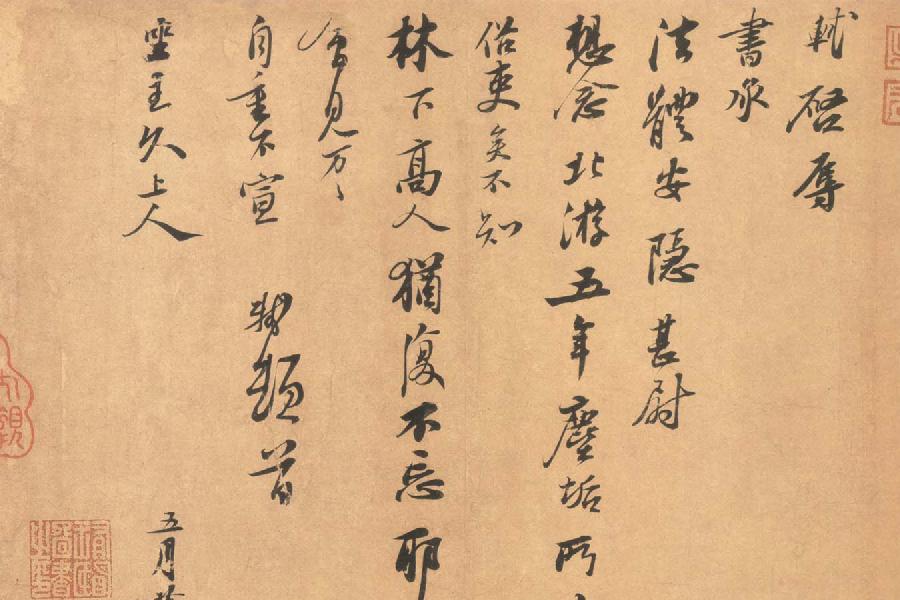 軾啓辱
書承
法體安隱甚尉
想念北游五年塵垢所
俗吏矣不知
林下高人猶復不忘耶
會見万〻
自重不宣 軾頓首
坐主久上人
五月